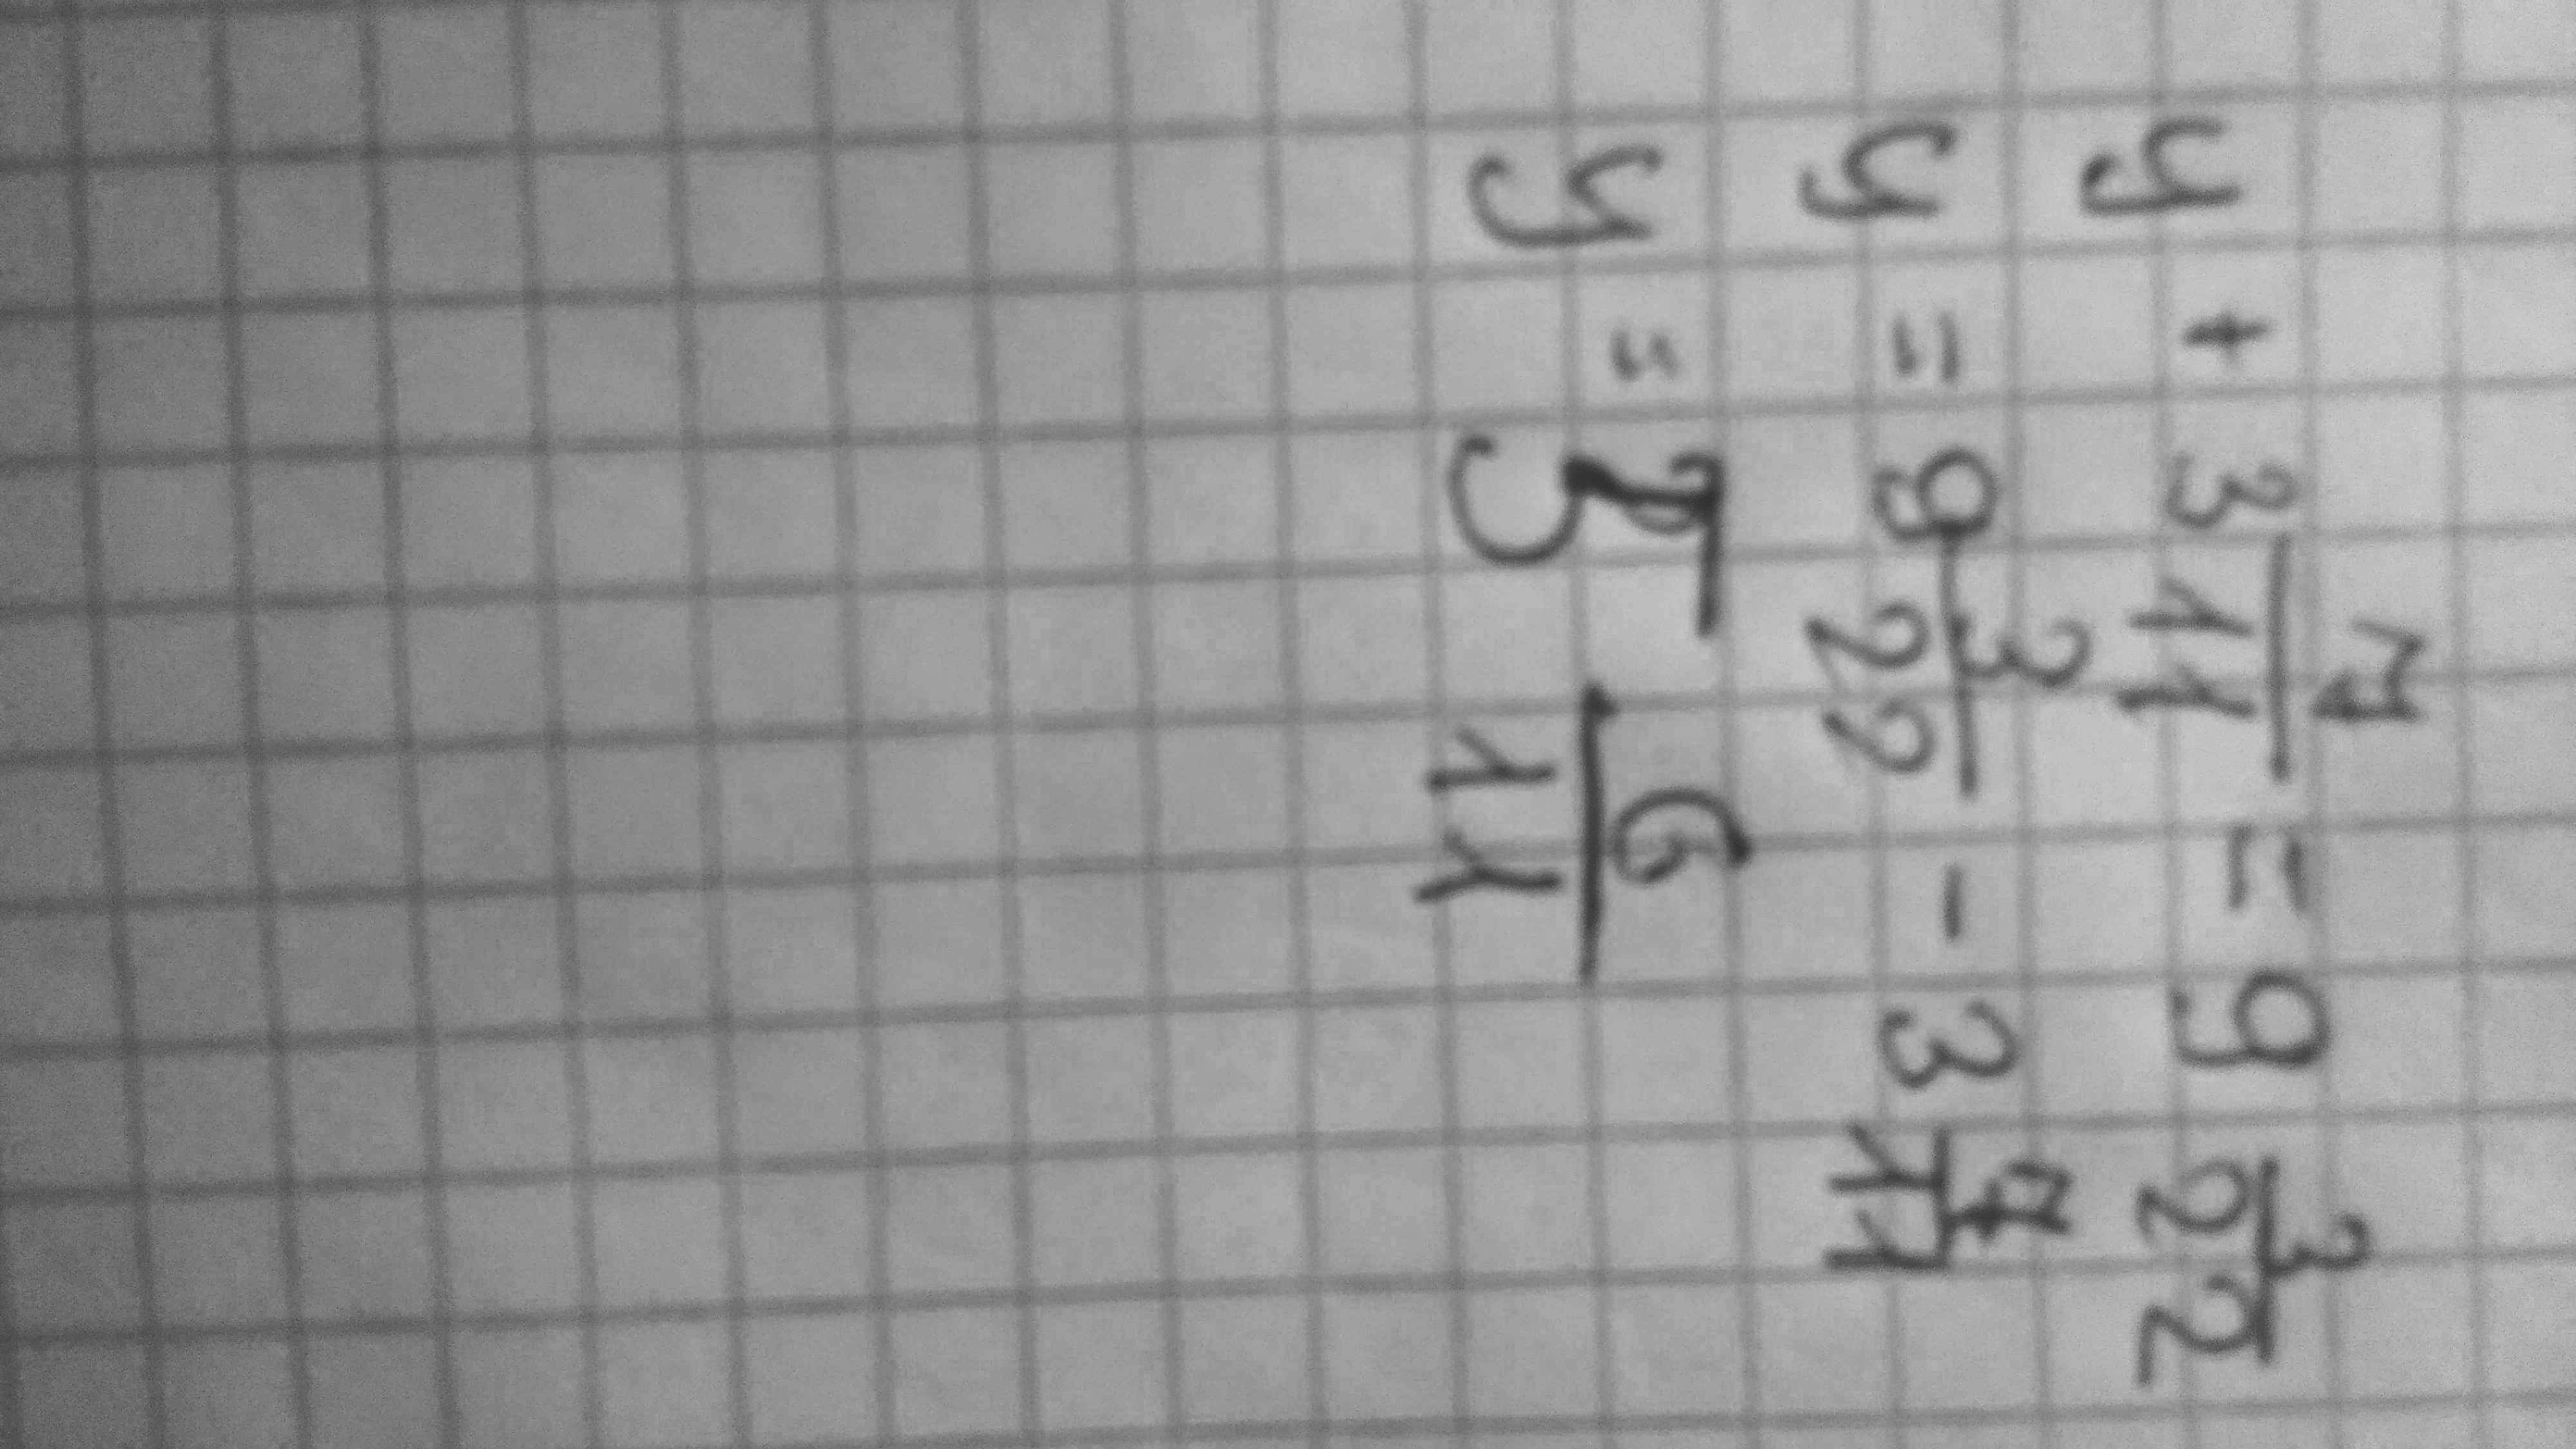 y + 3 7/11 = 9 3/22
y = 9 3/22 - 3 7/11
y = 5 6/11